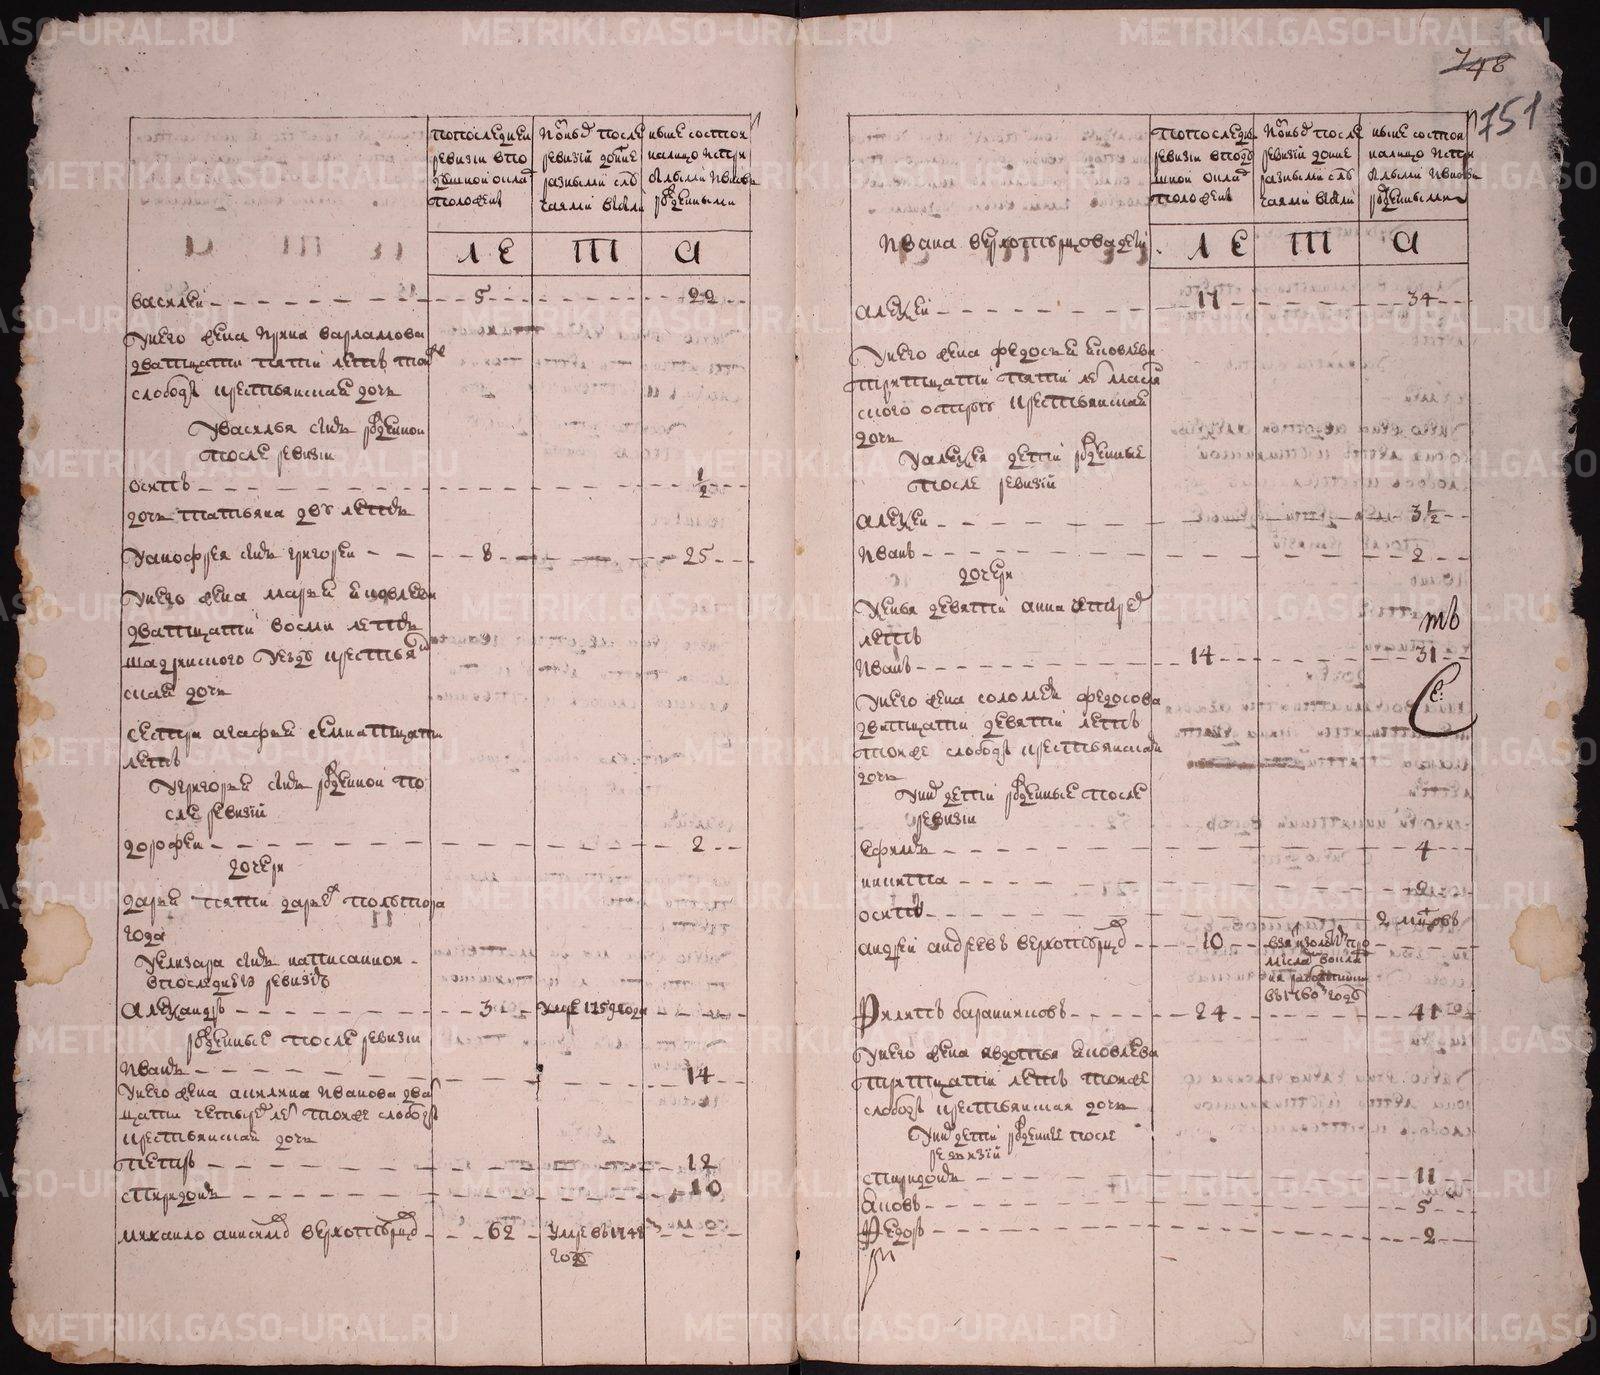 METRIKI.GASO-URAL.RU
748
751
попоследнеи
ревизiи впо
душной окла
положенъ
изоныхъ после
ревизiй доныне
разными слу
чаями выбыли
ныне состои
налицо истри
былыми ивновь
рожденными
ЛЕ
Т
А
василеи 5 22
унего жена ирина варламова
дватцати пяти летъ тоиже
слободы крестьянская дочь
увасилья снъ рожденной
после ревизiи
осипъ 1/2
дочь татьяна дву летъ
уанофрея снъ григореи 8 25
унего жена марья яковлева
дватцати восми летъ
шадринского уезду крестьян
ская дочь
сестра агафья семнатцати
летъ
угригорья снъ рожденной по
сле ревизiй
дорофеи 2
дочери
дарья пяти дарья полтора
года
уелизара снъ написанной
впоследнеи ревизiи
алеѯандръ 3 умре 1759 года
рожденные после ревизiи
иванъ 14
унего жена акилина иванова два
цати четырех летъ тоиже слободы
крестьянская дочь
петръ 12
спиридонъ 10
михаило анисимовъ верхотурцовъ 62 умре въ 1748
году
попоследне
ревизiи вподу
шной окла
положенъ
изоныхъ после
ревизiй доныне
разными слу
чаями выбыли
ныне состои
налицо истри
былыми ивновь
рожденными
ивана верхотурцова дети
ЛЕ
Т
А
алеѯеи 17 34
унего жена федосья яковлева
тритцати пяти летъ масля
ского острогу крестьянская
дочь
уалеѯея дети рожденные
после ревизiй
алеѯеи 3 1/2
иванъ 2
дочери
девяти анна четырехъ
летъ
иванъ 14 31
унего жена соломея федосова
дватцати девяти летъ
тоиже слободы крестьянская
дочь
унихъ дети рожденные после
ревизiи
ефимъ 4
никита 2
осипъ 2 мцовъ
андрей андреевъ верхотурцовъ 10
въ 1760 году
Филипъ баранниковъ 24 41
унего жена авдотья яковлева
тритцати летъ тоиже
слободы крестьянская дочь
унихъ дети рожденные после
ревизiй
спиридонъ 11
яковъ 5
Федоръ 2